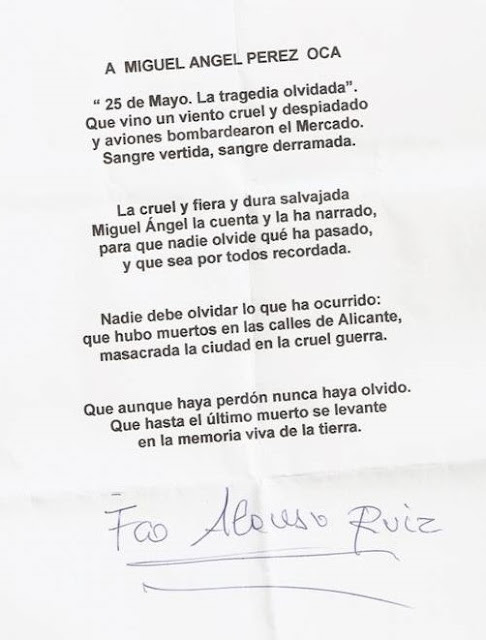 A MIGUEL ANGEL PEREZ OCA
“ 25 de Mayo. La tragedia olvidada”.
Que vino un viento cruel y despiadado
y aviones bombardearon el Mercado.
Sangre vertida, sangre derramada.
La cruel y fiera y dura salvajada
Miguel Ángel la cuenta y la ha narrado,
para que nadie olvide qué ha pasado,
y que sea por todos recordada.
Nadie debe olvidar lo que ha ocurrido:
que hubo muertos en las calles de Alicante,
masacrada la ciudad en la cruel guerra.
Que aunque haya perdón nunca haya olvido.
Que hasta el último muerto se levante
en la memoria viva de la tierra.
Fco Alonso Ruiz